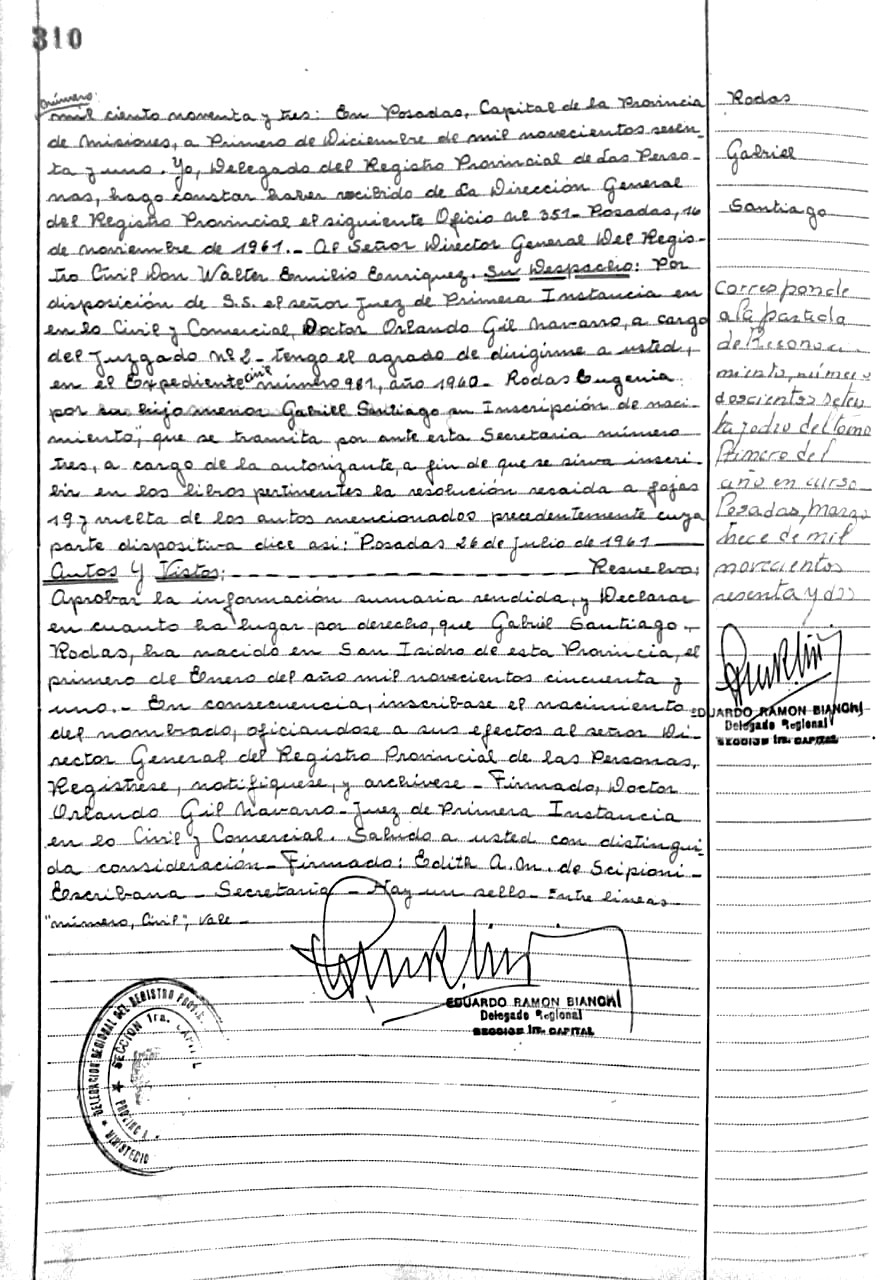 310
número:
mil ciento noventa y tres: En Posadas, Capital de la Provincia
de Misiones, a Primero de Diciembre de mil novecientos sesen-
ta y uno. Yo, Delegado del Registro Provincial de Las Perso-
nas, hago constar haber recibido de La Dirección General
del Registro Provincial el siguiente Oficio nº 351- Posadas, 16
de noviembre de 1961.- Al Señor Director General Del Regis-
tro Civil Don Walter Emilio Enriquez. Su Despacho: Por
disposición de S.S. el señor Juez de Primera Instancia en
en lo Civil y Comercial, Doctor Orlando Gil Navarro, a cargo
del Juzgado nº 2- tengo el agrado de dirigirme a usted,
en el Expediente civil número 981, año 1960- Rodas Eugenia
por su hijo menor Gabriel Santiago su Inscripción de naci-
miento", que se tramita por ante esta Secretaria número
tres, a cargo de la autorizante, a fin de que se sirva inscri-
bir en los libros pertinentes la resolución recaida a fojas
19 y vuelta de los autos mencionados precedentemente cuya
parte dispositiva dice asi: "Posadas 26 de Julio de 1961
Autos Y Vistos: Resuelvo:
Aprobar la información sumaria rendida, y Declarar
en cuanto ha lugar por derecho, que Gabriel Santiago
Rodas, ha nacido en San Isidro de esta Provincia, el
primero de Enero del año mil novecientos cincuenta y
uno.- En consecuencia, inscribase el nacimiento
del nombrado, oficiandose a sus efectos al señor Di-
rector General del Registro Provincial de las Personas,
Registrese, notifiquese, y archivese- Firmado, Doctor
Orlando Gil Navarro- Juez de Primera Instancia
en lo Civil y Comercial. Saludo a usted con distingui-
da consideración- Firmado: Edith A. M. de Scipioni-
Escribana- Secretaria- Hay un sello- Entre lineas-
"número, Civil", vale-
EDUARDO RAMON BIANCHI
Delegado Regional
SECCION 1ra. CAPITAL
DELEGACION REGIONAL DEL REGISTRO
SECCION 1ra.
MINISTERIO
Rodas
Gabriel
Santiago
Corresponde
a la partida
de Reconoci
miento, número
doscientos seten
ta del tomo
Primero del
año en curso
Posadas, Marzo
trece de mil
novecientos
sesenta y dos
EDUARDO RAMON BIANCHI
Delegado Regional
SECCION 1ra. CAPITAL